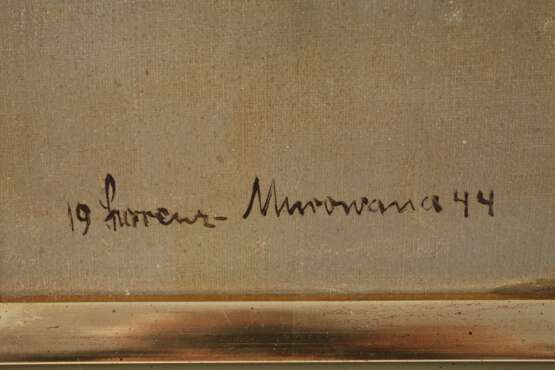 19 Lorenz- Murowana 44